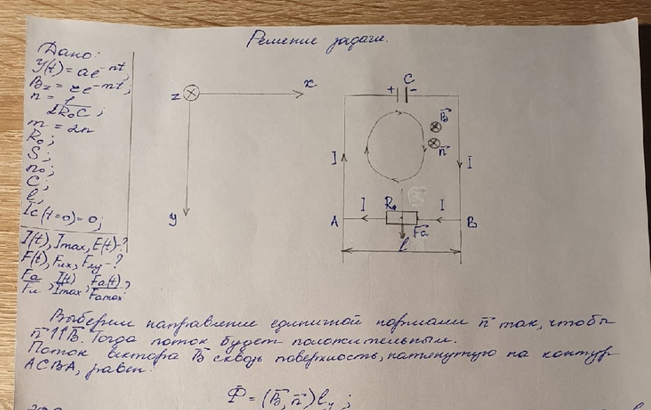 Решение задачи.
Дано:
y(t) = ae^-nt;
Bz = ze^-mt;
n = 1/2R₀C;
m = 2n
R₀;
S;
n₀;
C;
l;
Ic(t=0)=0;
I(t), Imax, E(t)-?
F(t), Fux, Fuy-?
Fa/Fu, I(t)/Imax, Fa(t)/Famax?
z
x
y
C
+ -
B̄
n̄
I
I
I
R₀
I
A
B
Fa
l
Выберем направление единичной нормали n̄ так, чтобы
n̄↑↑B̄. Тогда поток будет положительным.
Поток вектора B̄ сквозь поверхность, натянутую на контур
ACBA, равен:
Φ = (B̄, n̄) ly;